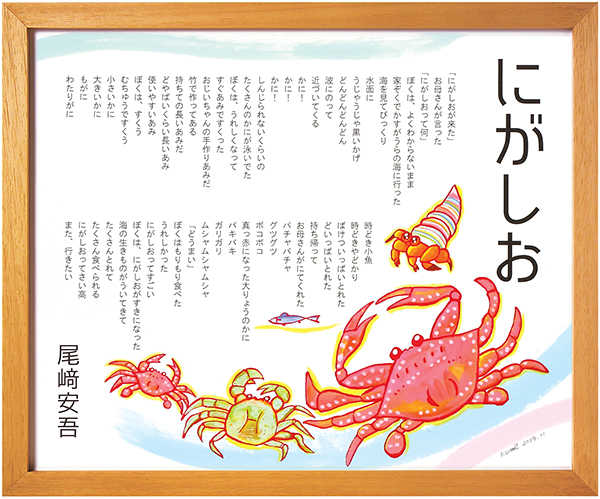 にがしお
「にがしおが来た」
お母さんが言った
「にがしおって何」
ぼくは、よくわからないまま
家ぞくでかすがうらの海に行った
海を見てびっくり
水面に
うじゃうじゃ黒いかげ
どんどんどんどん
波にのって
近づいてくる
かに！
かに！
かに！
しんじられないくらいの
たくさんのかにが泳いでた
ぼくは、うれしくなって
すぐあみですくった
おじいちゃんの手作りあみだ
竹で作ってある
持ちての長いあみだ
どやばいくらい長いあみ
使いやすいあみ
ぼくは、すくう
むちゅうですくう
小さいかに
大きいかに
もがに
わたりがに
時どき小魚
時どきやどかり
ばけついっぱいとれた
どいっぱいとれた
持ち帰って
お母さんがにてくれた
バチャバチャ
グツグツ
ボコボコ
真っ赤になった大りょうのかに
バキバキ
ガリガリ
ムシャムシャムシャ
「どうまい」
ぼくはもりもり食べた
うれしかった
にがしおってすごい
ぼくは、にがしおがすきになった
海の生きものがういてきて
たくさんとれて
たくさん食べられる
にがしおってさい高
また、行きたい
尾﨑安吾